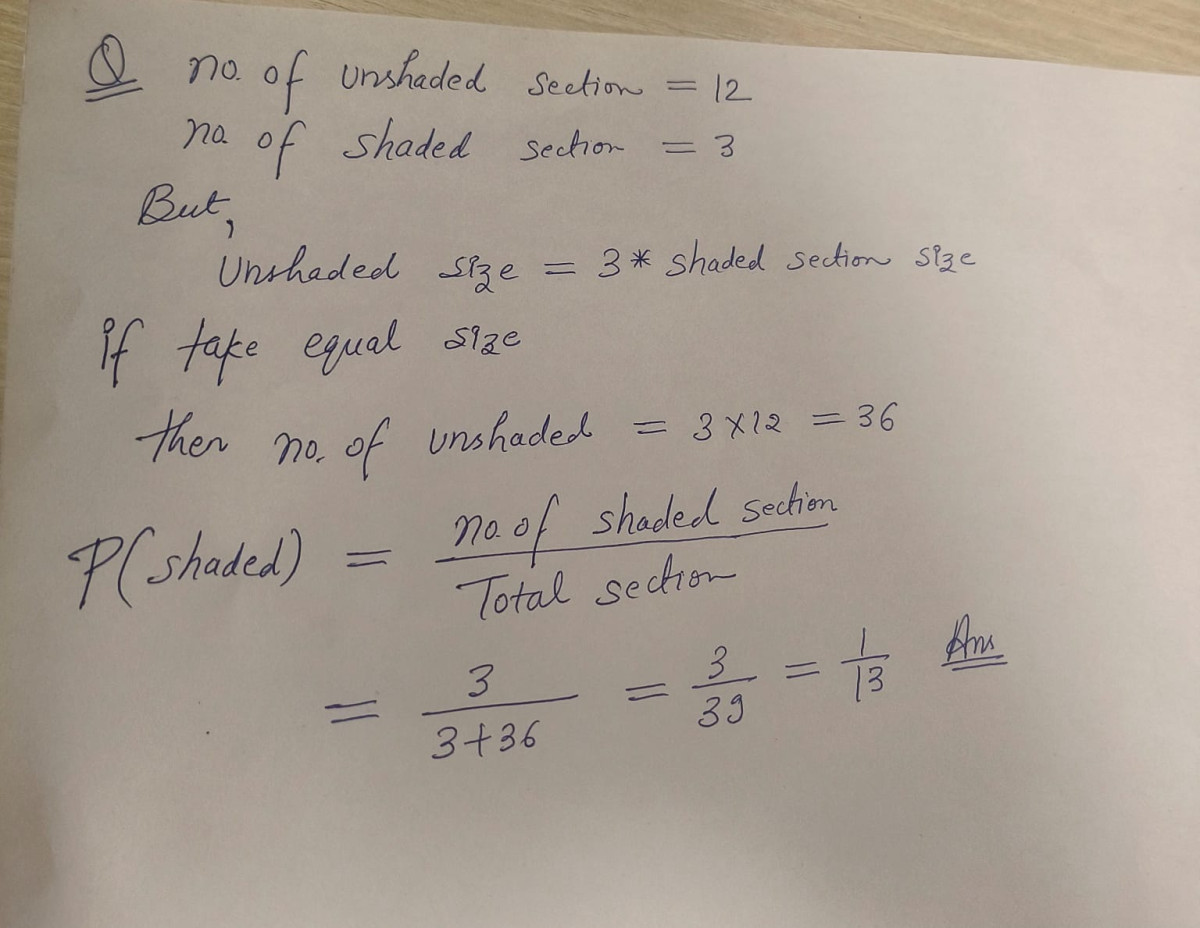 Q no. of unshaded section = 12
no. of shaded section = 3
But,
Unshaded size = 3 * shaded section size
if take equal size
then no. of unshaded = 3 × 12 = 36
P(shaded) = no. of shaded section / Total section
= 3 / 3+36 = 3/39 = 1/13 Ans